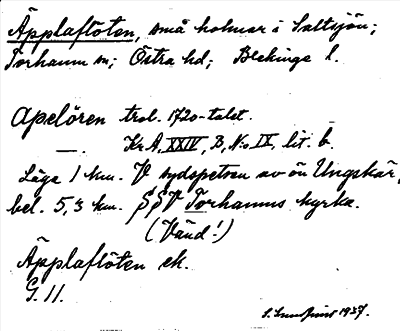 Äpplaflöten, små holmar i Saltsjön;
Torhamn sn; Östra hd; Blekinge l.
Apelören trol. 1720-talet.
—. Kr. A, XXIV, B, N:o IX, lit. b.
Läge 1 km. V sydspetsen av ön Ungskär,
bel. 5,3 km. SSV Torhamns kyrka.
(Vänd!)
Äpplaflöten ek.
G. 11.
1937.